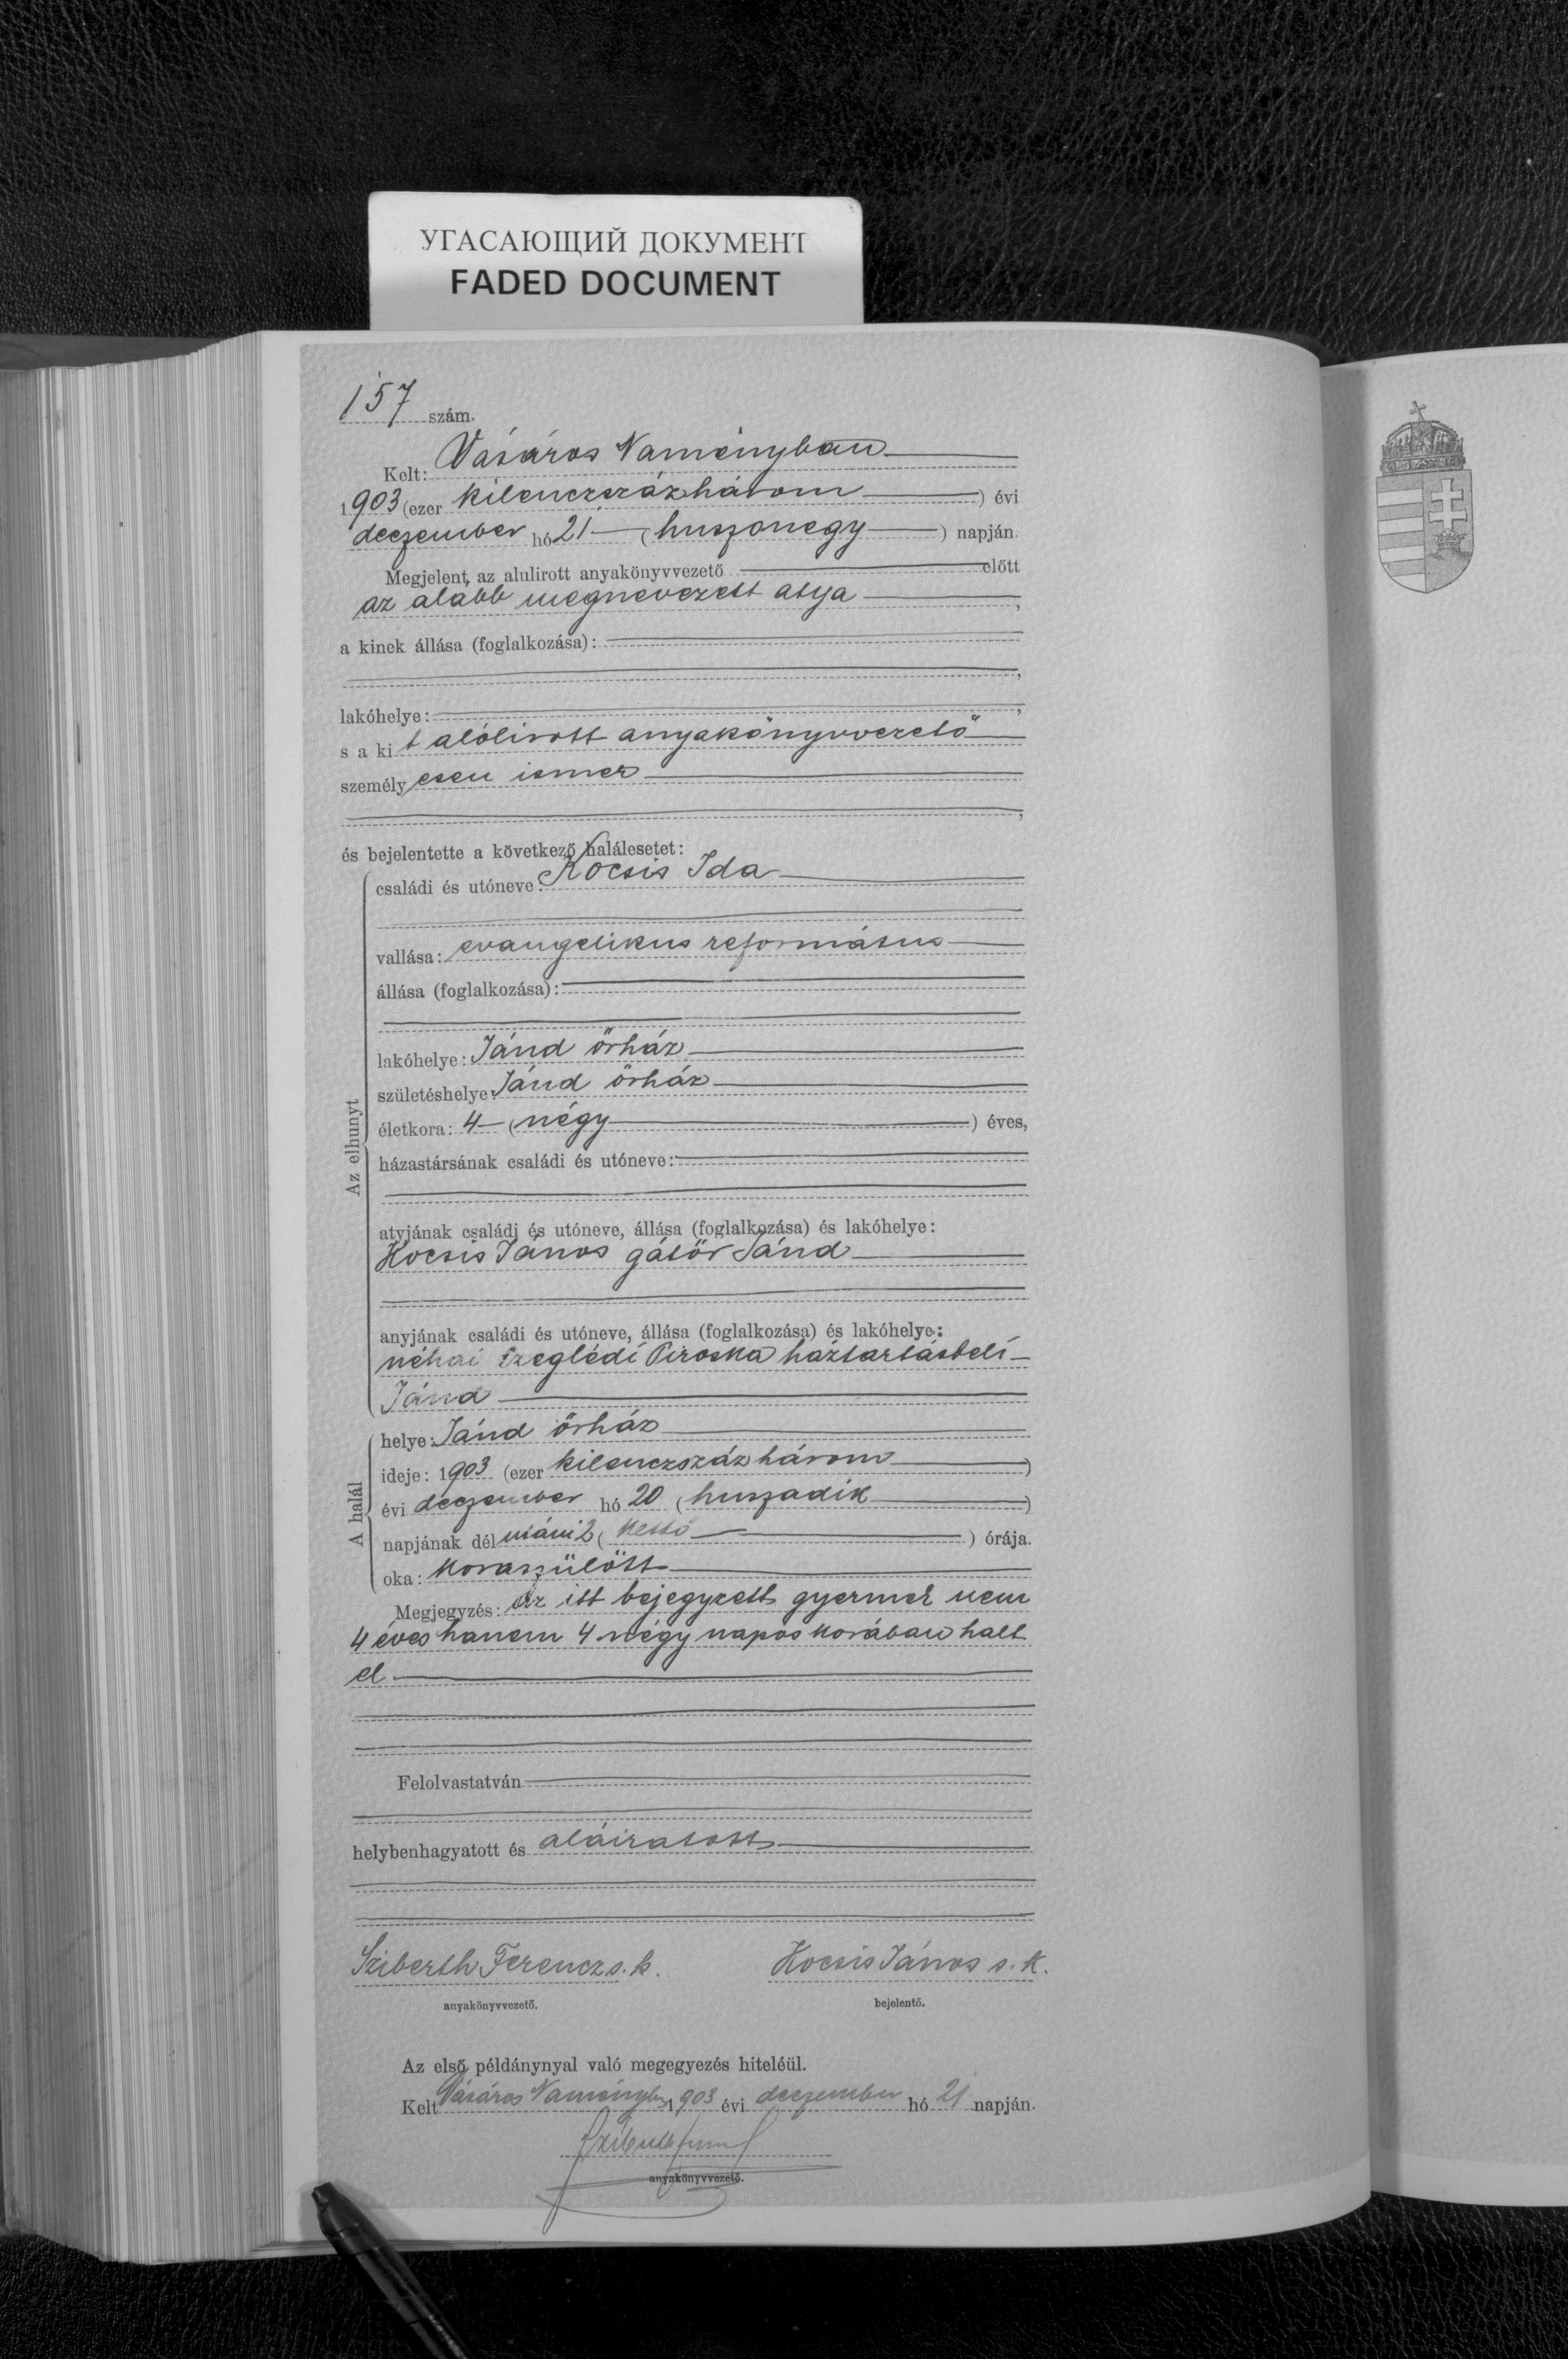 УГАСАЮЩИЙ ДОКУМЕНТ
FADED DOCUMENT
157 szám.
Kelt: Vásáros Naményban
1903 (ezer kilenczszázhárom ) évi
deczember hó 21 ( huszonegy ) napján.
Megjelent, az alulirott anyakönyvvezető előtt
az alább megnevezett atya ,
a kinek állása (foglalkozása):
,
lakóhelye: ,
s a kit alólirott anyakönyvvezető
személyesen ismer
,
és bejelentette a következő halálesetet:
családi és utóneve: Kocsis Ida
vallása: evangelikus református
állása (foglalkozása):
lakóhelye: Jánd őrház
születéshelye: Jánd őrház
életkora: 4 ( négy ) éves,
Az elhunyt
házastársának családi és utóneve:
atyjának családi és utóneve, állása (foglalkozása) és lakóhelye:
Kocsis János gátőr Jánd
anyjának családi és utóneve, állása (foglalkozása) és lakóhelye:
néhai Czeglédi Piroska háztartásbeli
Jánd
A halál
helye: Jánd őrház
ideje: 1903 (ezer kilenczszázhárom )
évi deczember hó 20 ( huszadik )
napjának délutáni 2 ( kettő ) órája.
oka: koraszülött
Megjegyzés: Az itt bejegyzett gyermek nem
4 éves hanem 4 négy napos korában halt
el.
Felolvastatván
helybenhagyatott és aláiratott
Sziberth Ferencz s. k. Kocsis János s. k.
anyakönyvvezető. bejelentő.
Az első példánynyal való megegyezés hiteléül.
Kelt Vásáros Naményban 1903 évi deczember hó 21 napján.
anyakönyvvezető.